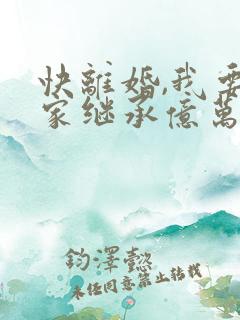 快離婚,我要
家继承億萬
鈞澤懿
未任同意禁止转載